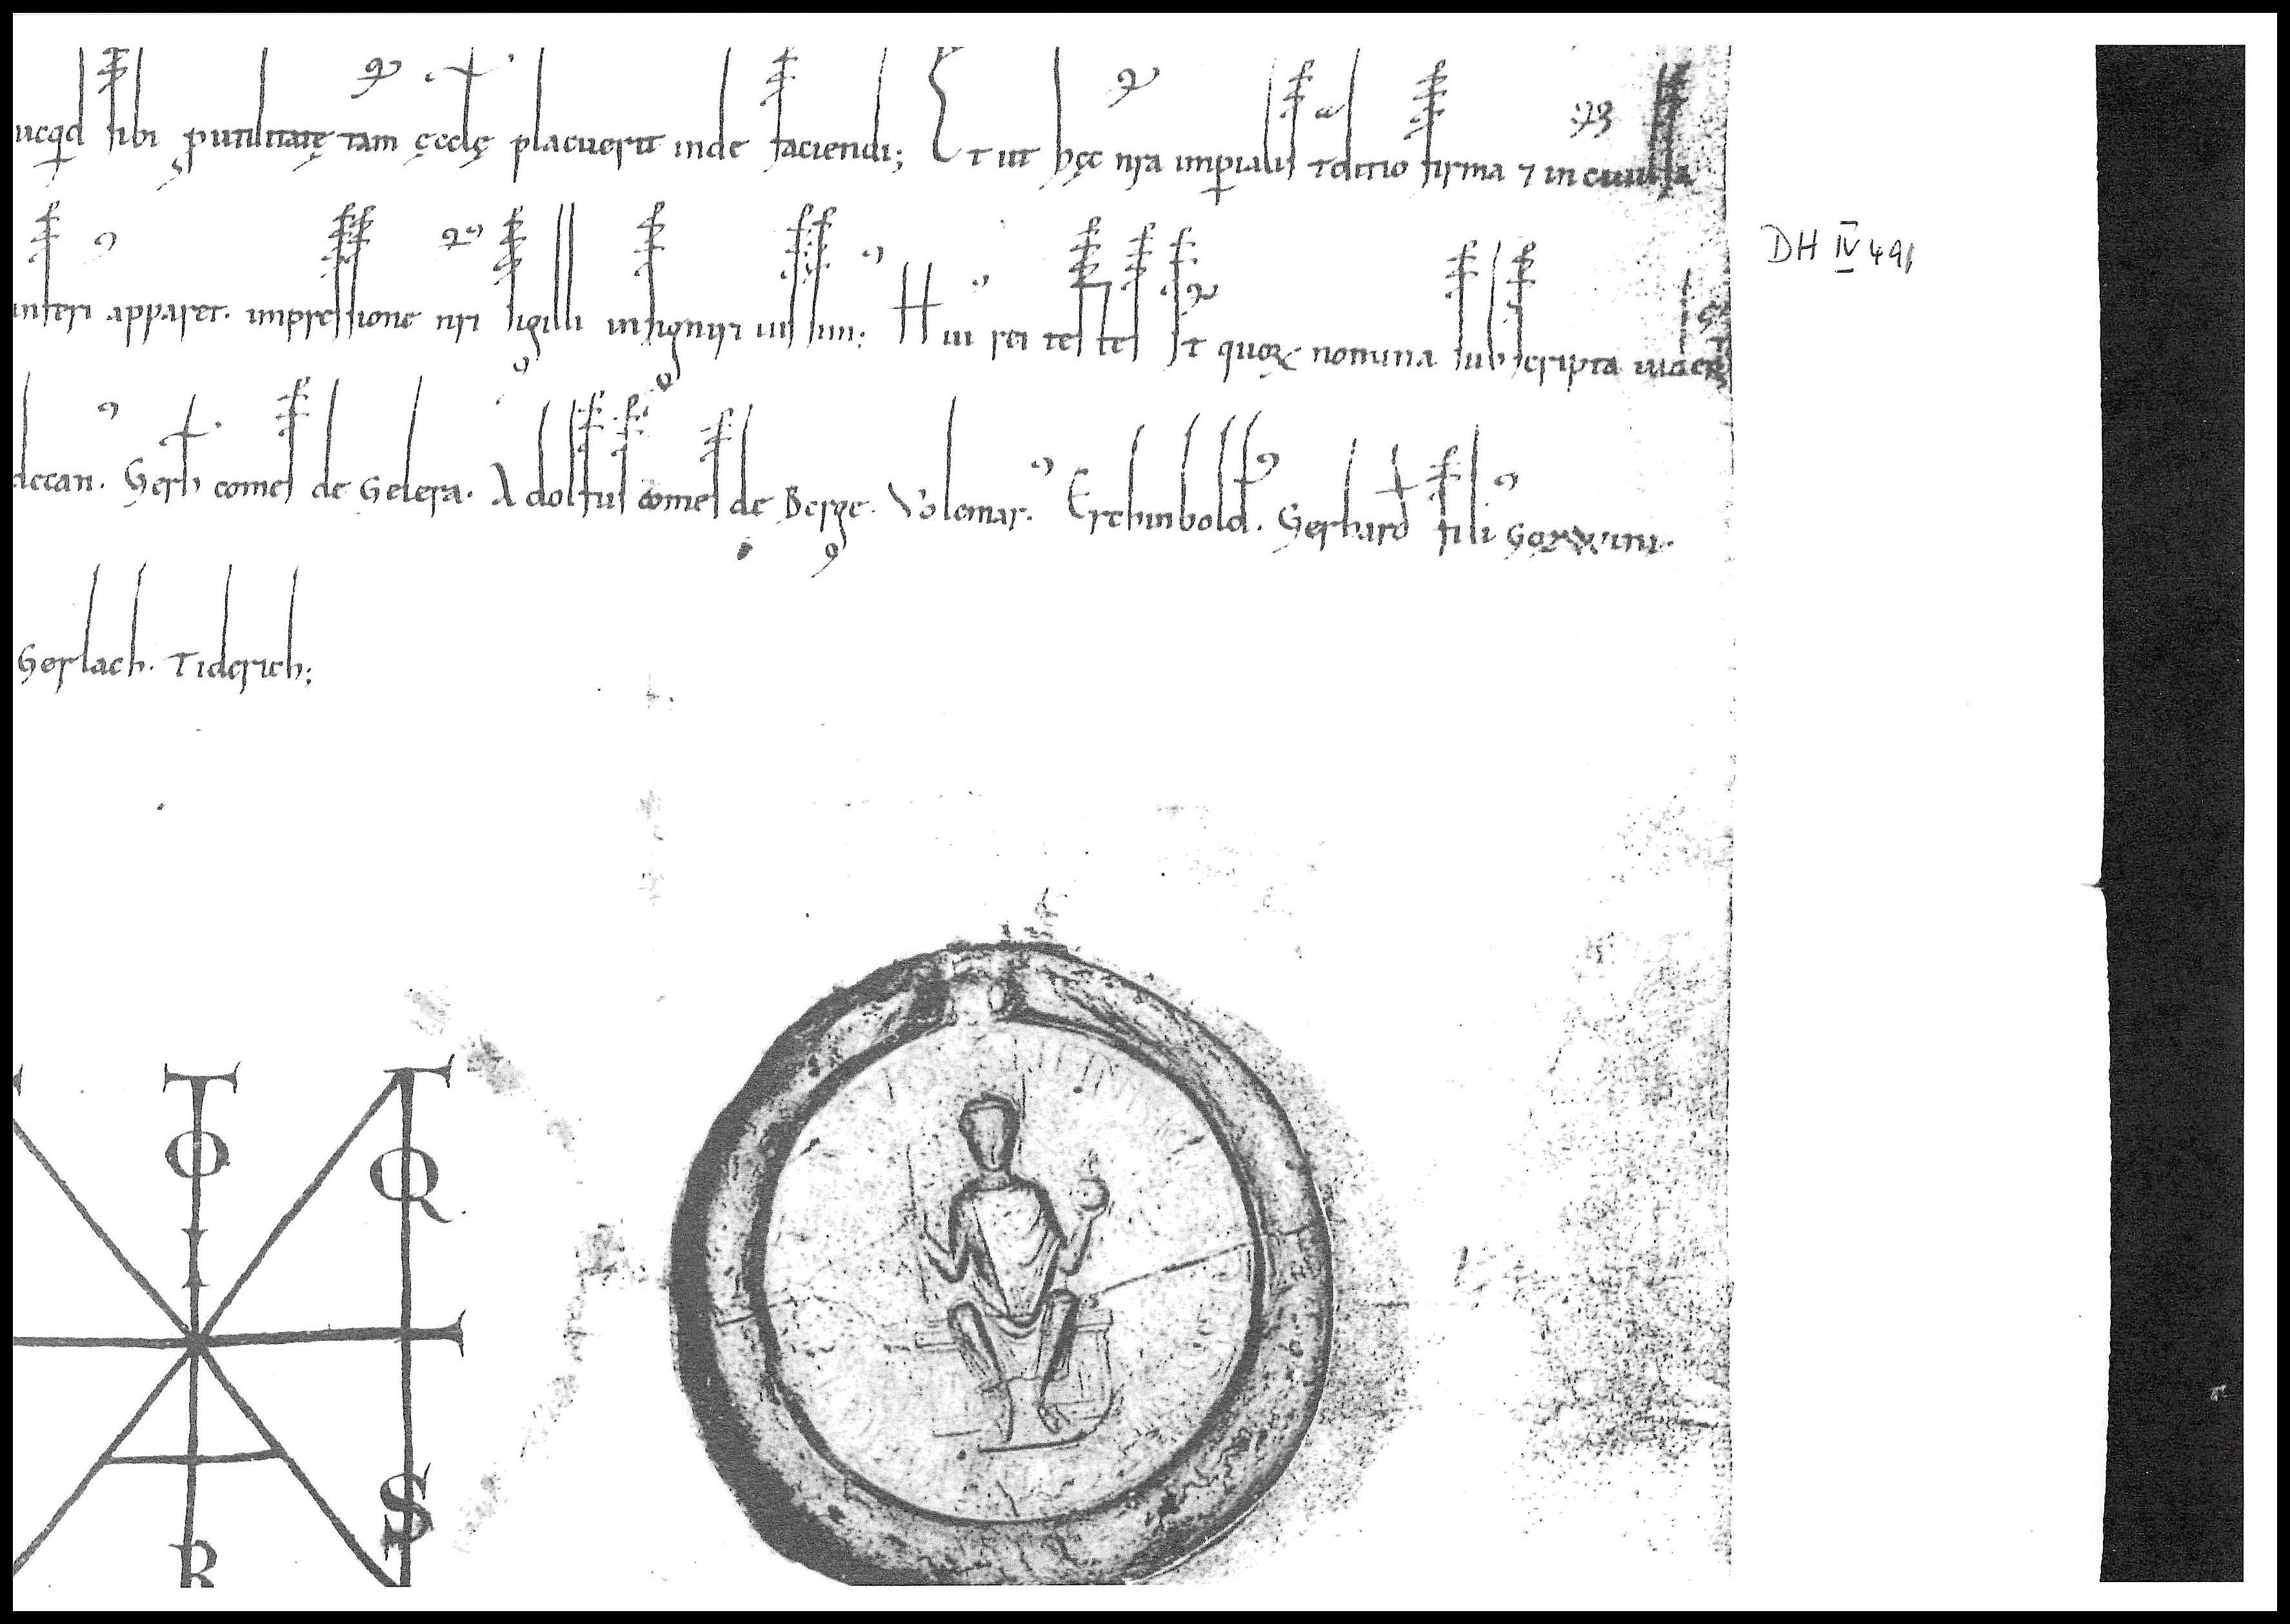 ucqd sibi p utilitatę tam ęcclę placuerit inde faciendi; Et ut hęc nra impialis tditio firma ⁊ in
apparet. impressione nri sigilli insigniri iussim; Hui rei testes st quorꝫ nomina subscripta
decan. Gerh comes de Gelera. Adolfus comes de Berge. Volcmar. Erchinbold. Gerhard fili
Gerlach. Tiderich;
DH IV 491
T T
O O R
S
R